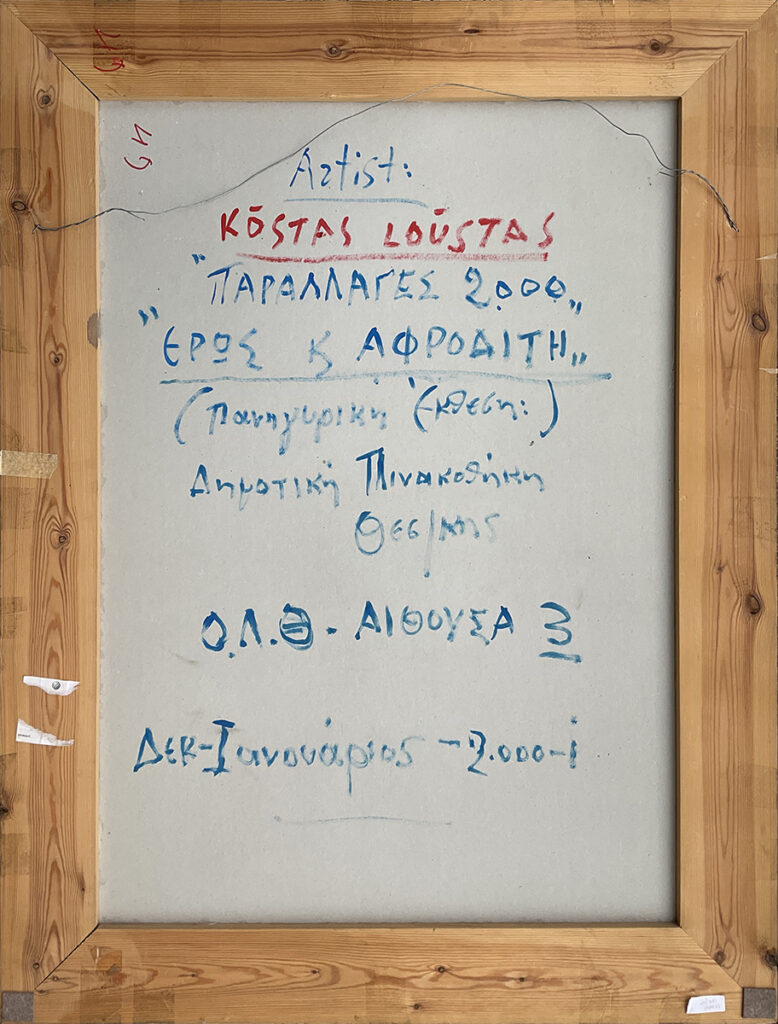 Artist:
KŌSTAS LOŪSTAS
"ΠΑΡΑΛΛΑΓΕΣ 2.000„
"ΕΡΩΣ ϗ ΑΦΡΟΔΙΤΗ„
(Πανηγυρική Έκθεση:)
Δημοτική Πινακοθήκη
Θεσ/κης
Ο.Λ.Θ. - ΑΙΘΟΥΣΑ 3
ΔΕΚ-Ιανουάριος - 2.000-i